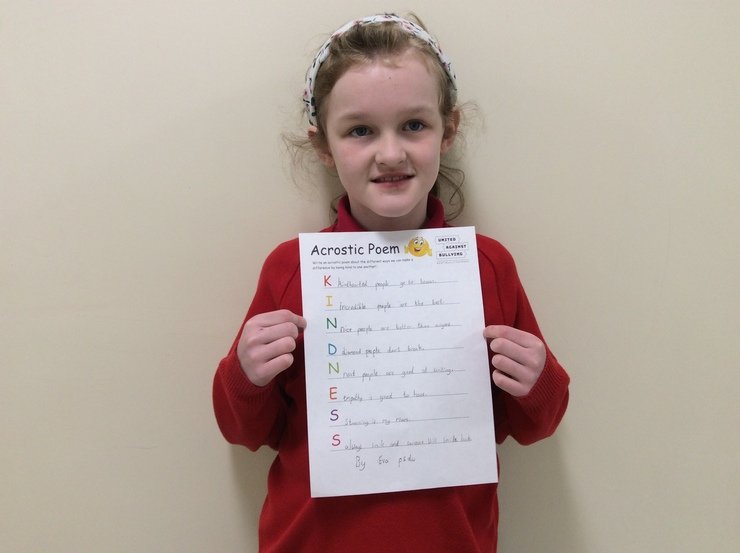 Acrostic Poem
UNITED
AGAINST
BULLYING
Write an acrostic poem about the different ways we can make a
difference by being kind to one another!
K Kindhearted people go to heaven.
I Incredible people are the best.
N nice people are better than angry.
D diamond people don't break.
N neat people are good at writing.
E empathy is good to have.
S Stunning is my
S always and will
By